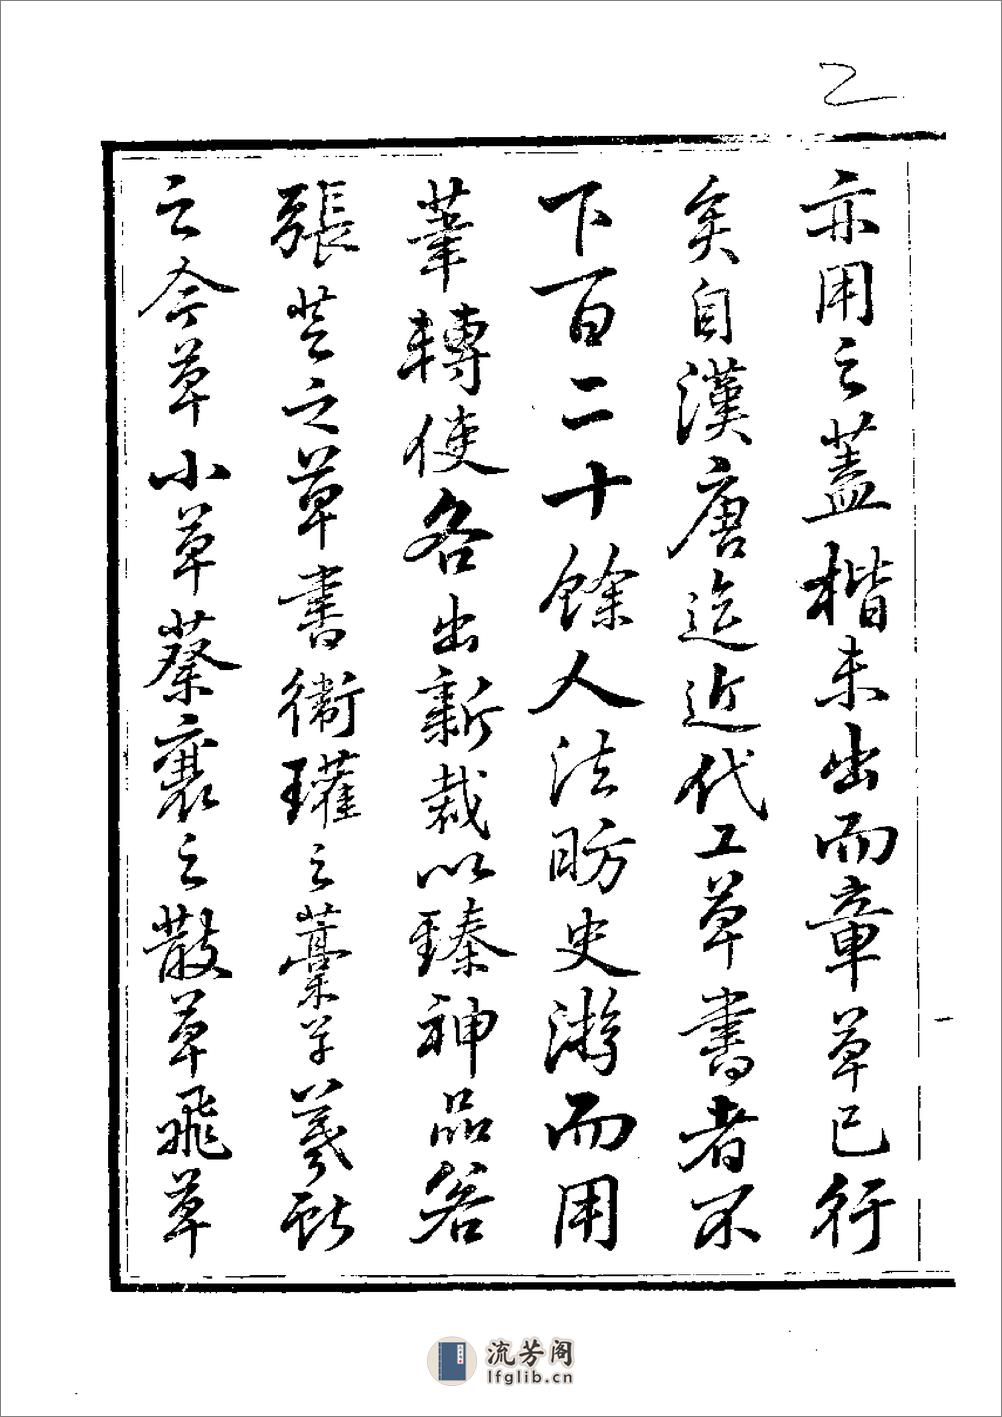 乙
亦用之蓋楷未出而章草已行
矣自漢唐迄近代工草書者不
下百二十餘人法昉史游而用
筆轉使各出新裁以臻神品若
張芝之草書衛瓘之藁草羲獻
之今草小草蔡襄之散草飛草
流芳阁
lfglib.cn